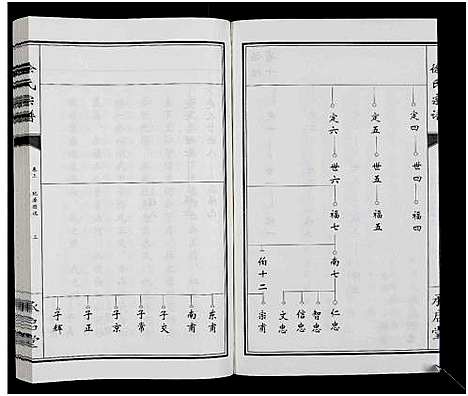 徐氏宗譜
定四
世四
福四
定五
世五
福五
定六
世六
福七
南七
伯十二
仁忠
智忠
信忠
文忠
宗甫
承啟堂
徐氏宗譜
卷上
三
东甫
南甫
子文
子常
子京
子正
子輝
承啟堂